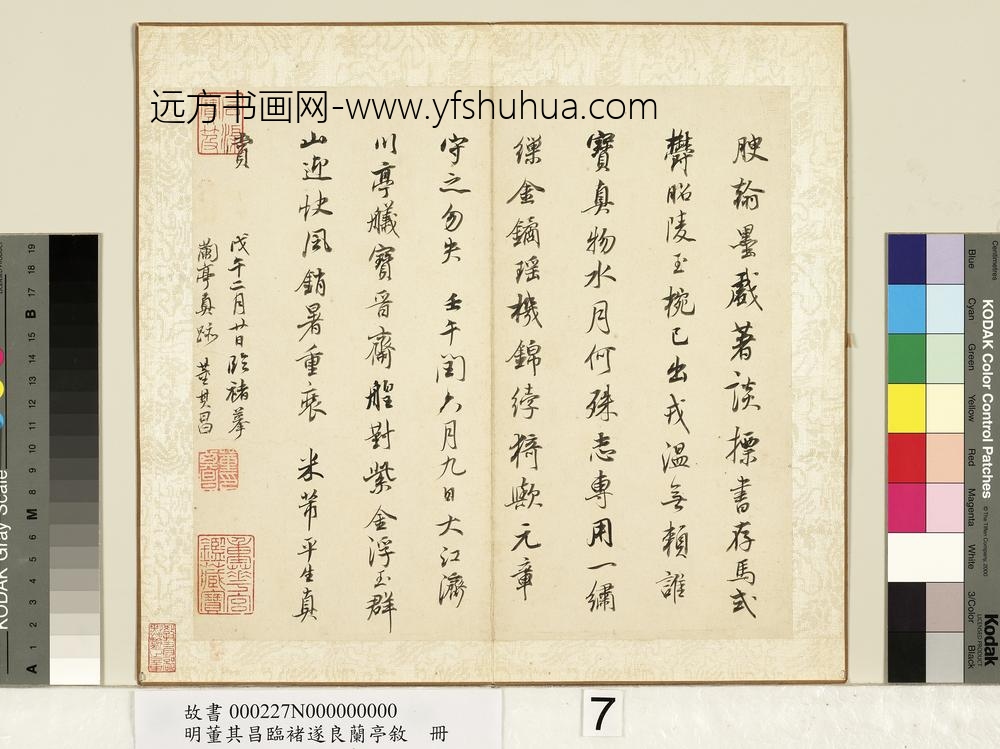 远方书画网-www.yfshuhua.com
腴翰墨戲著談標書存馬式
欝昭陵玉椀已出戎温無賴誰
寶真物水月何殊志專用一繡
繅金鐍瑶機錦綍猗歟元章
守之勿失 壬午閏六月九日大江濟
川亭艤寶晉齋艎對紫金浮玉群
山迎快風銷暑重裝 米芾平生真
賞
戊午二月廿日臨褚摹
蘭亭真跡 董其昌
故書 000227N000000000
明董其昌臨褚遂良蘭亭敘 冊
7
KODAK Color Control Patches
© The Tiffen Company, 2000
Centimetres
Blue
Cyan
Green
Yellow
Red
Magenta
White
3/Color
Black
Kodak
LICENSED PRODUCT
KODAK Gray Scale
A 1 2 3 4 5 6 M 8 9 10 11 12 13 14 15 B 17 18 19